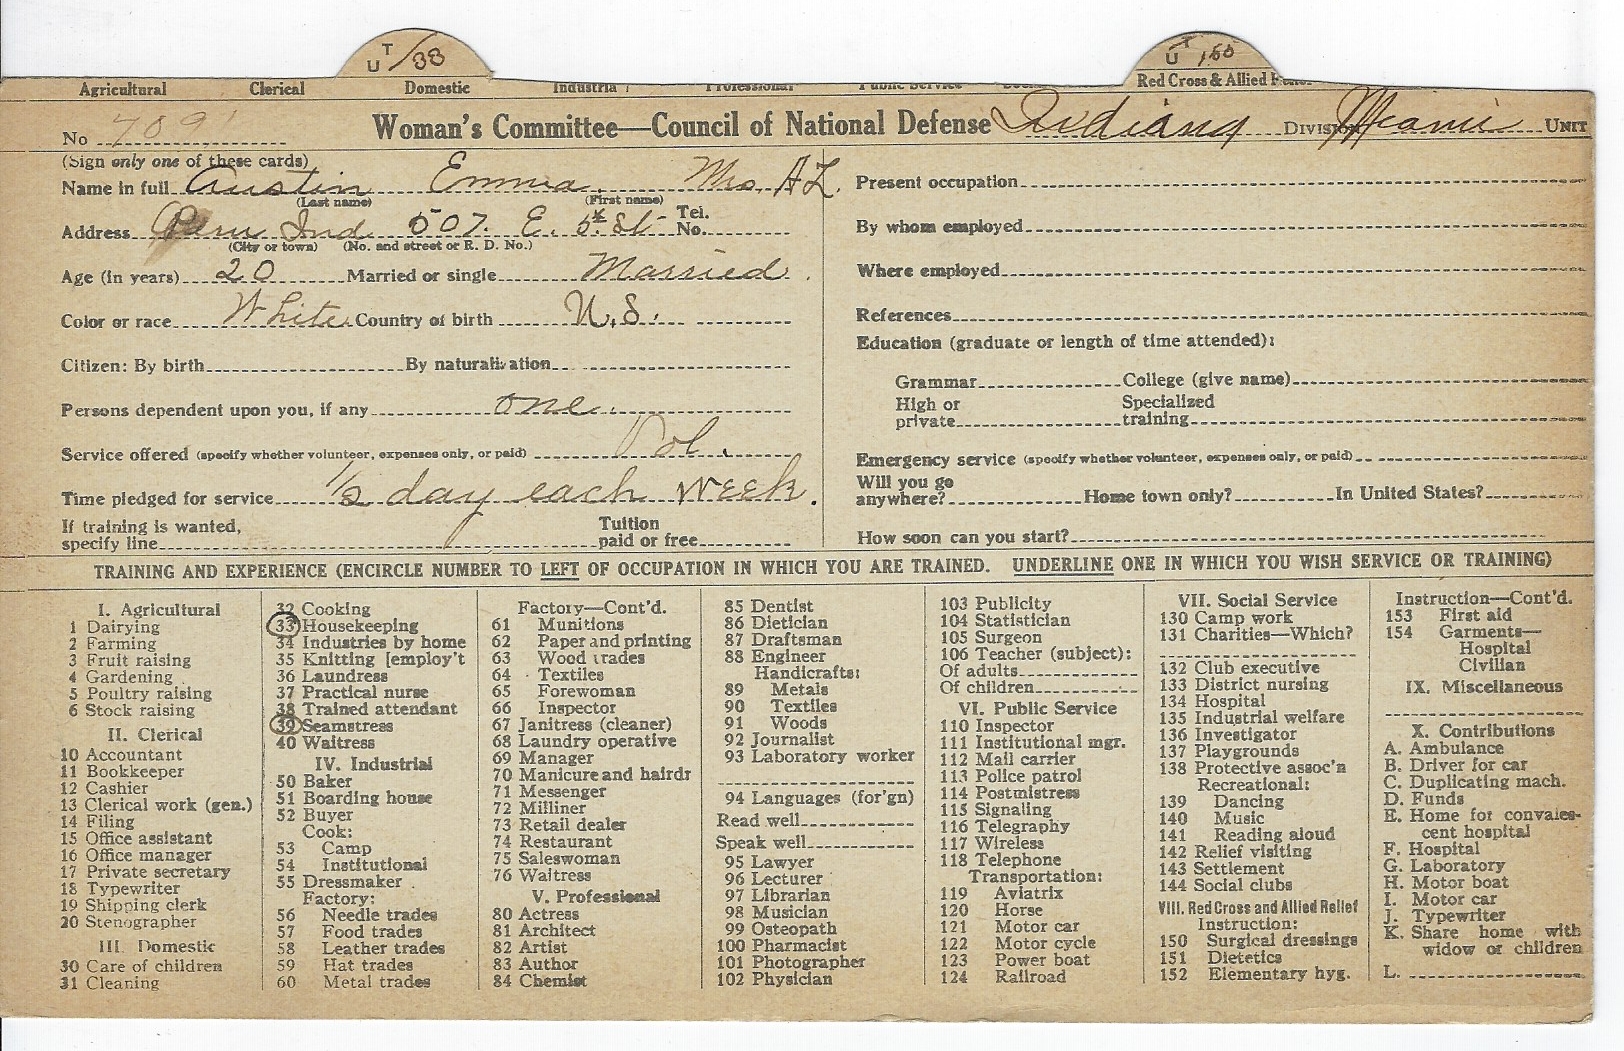 T
U /33
U T 150
Agricultural Clerical Domestic Industrial Professional Public Service Red Cross & Allied
No 7091 Woman's Committee—Council of National Defense Indiana Division Miami Unit
(Sign only one of these cards)
Name in full Austin Emma. Mrs A L.
(Last name) (First name)
Address Peru Ind. 507. E. 5th St Tel. No.
(City or town) (No. and street or R. D. No.)
Age (in years) 20 Married or single Married.
Color or race White Country of birth U.S.
Citizen: By birth By naturalization
Persons dependent upon you, if any one.
Service offered (specify whether volunteer, expenses only, or paid) Vol.
Time pledged for service 1/2 day each week.
If training is wanted, specify line Tuition paid or free
Present occupation
By whom employed
Where employed
References
Education (graduate or length of time attended):
Grammar College (give name)
High or private Specialized training
Emergency service (specify whether volunteer, expenses only, or paid)
Will you go anywhere? Home town only? In United States?
How soon can you start?
TRAINING AND EXPERIENCE (ENCIRCLE NUMBER TO LEFT OF OCCUPATION IN WHICH YOU ARE TRAINED. UNDERLINE ONE IN WHICH YOU WISH SERVICE OR TRAINING)
I. Agricultural
1 Dairying
2 Farming
3 Fruit raising
4 Gardening
5 Poultry raising
6 Stock raising
II. Clerical
10 Accountant
11 Bookkeeper
12 Cashier
13 Clerical work (gen.)
14 Filing
15 Office assistant
16 Office manager
17 Private secretary
18 Typewriter
19 Shipping clerk
20 Stenographer
III. Domestic
30 Care of children
31 Cleaning
32 Cooking
33 Housekeeping
34 Industries by home
35 Knitting [employ't
36 Laundress
37 Practical nurse
38 Trained attendant
39 Seamstress
40 Waitress
IV. Industrial
50 Baker
51 Boarding house
52 Buyer
Cook:
53 Camp
54 Institutional
55 Dressmaker
Factory:
56 Needle trades
57 Food trades
58 Leather trades
59 Hat trades
60 Metal trades
Factory—Cont'd.
61 Munitions
62 Paper and printing
63 Wood trades
64 Textiles
65 Forewoman
66 Inspector
67 Janitress (cleaner)
68 Laundry operative
69 Manager
70 Manicure and hairdr
71 Messenger
72 Milliner
73 Retail dealer
74 Restaurant
75 Saleswoman
76 Waitress
V. Professional
80 Actress
81 Architect
82 Artist
83 Author
84 Chemist
85 Dentist
86 Dietician
87 Draftsman
88 Engineer
Handicrafts:
89 Metals
90 Textiles
91 Woods
92 Journalist
93 Laboratory worker
94 Languages (for'gn)
Read well
Speak well
95 Lawyer
96 Lecturer
97 Librarian
98 Musician
99 Osteopath
100 Pharmacist
101 Photographer
102 Physician
103 Publicity
104 Statistician
105 Surgeon
106 Teacher (subject):
Of adults
Of children
VI. Public Service
110 Inspector
111 Institutional mgr.
112 Mail carrier
113 Police patrol
114 Postmistress
115 Signaling
116 Telegraphy
117 Wireless
118 Telephone
Transportation:
119 Aviatrix
120 Horse
121 Motor car
122 Motor cycle
123 Power boat
124 Railroad
VII. Social Service
130 Camp work
131 Charities—Which?
132 Club executive
133 District nursing
134 Hospital
135 Industrial welfare
136 Investigator
137 Playgrounds
138 Protective assoc'n
Recreational:
139 Dancing
140 Music
141 Reading aloud
142 Relief visiting
143 Settlement
144 Social clubs
VIII. Red Cross and Allied Relief
Instruction:
150 Surgical dressings
151 Dietetics
152 Elementary hyg.
Instruction—Cont'd.
153 First aid
154 Garments—
Hospital
Civilian
IX. Miscellaneous
X. Contributions
A. Ambulance
B. Driver for car
C. Duplicating mach.
D. Funds
E. Home for convales-
cent hospital
F. Hospital
G. Laboratory
H. Motor boat
I. Motor car
J. Typewriter
K. Share home with
widow or children
L.